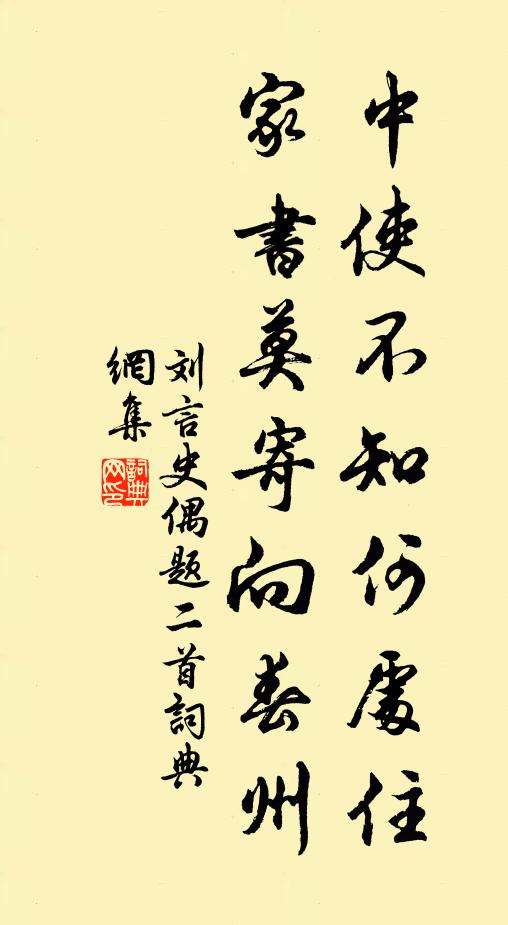 中使不知何處住
家書莫寄向春州
刘言史偶题二首詞典
網集
詞典
网印